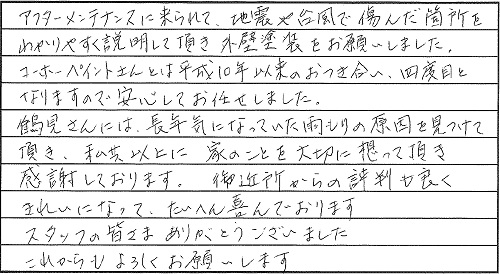 アフターメンテナンスに来られて、地震や台風で傷んだ箇所を
わかりやすく説明して頂き外壁塗装をお願いしました。
ユーホーペイントさんとは平成10年以来のおつき合い、四度目と
なりますので安心してお任せしました。
鶴見さんには、長年気になっていた雨もりの原因を見つけて
頂き、私共以上に 家のことを大切に想って頂き
感謝しております。 御近所からの評判も良く
きれいになって、たいへん喜んでおります
スタッフの皆さま ありがとうございました
これからも よろしくお願いします